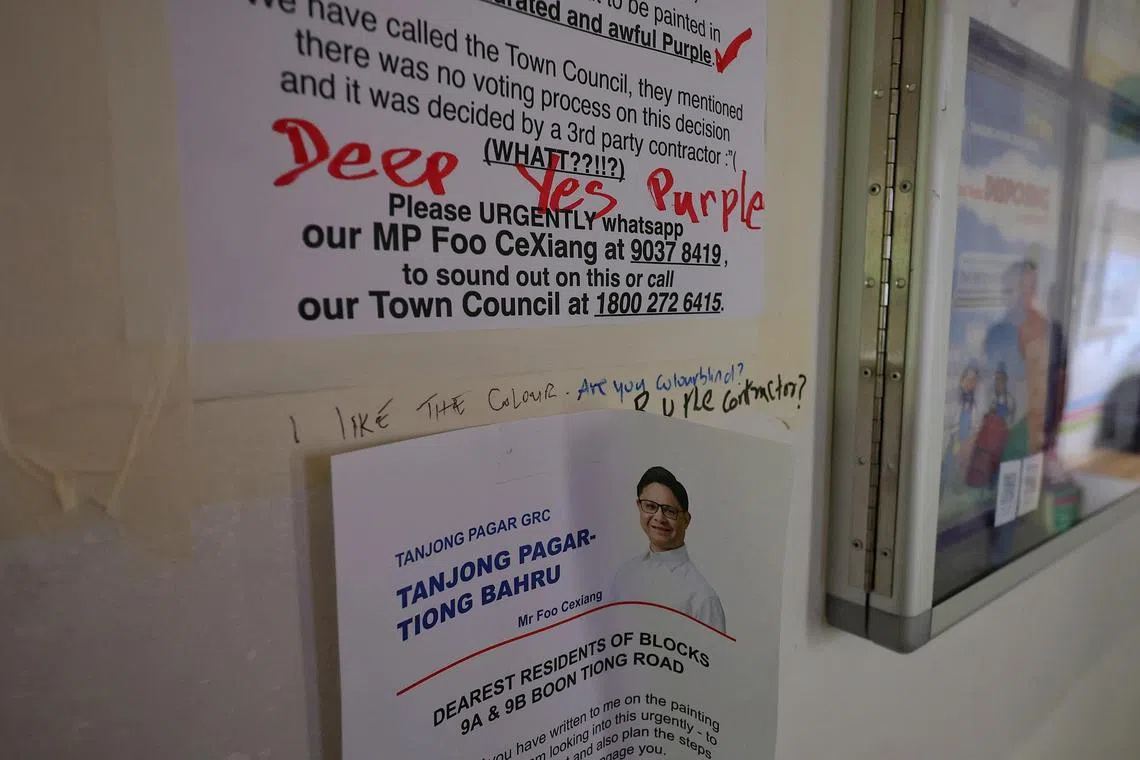 to be painted in
and awful Purple.
We have called the Town Council, they mentioned
there was no voting process on this decision
and it was decided by a 3rd party contractor :"(
(WHATT??!!?)
Deep Yes Purple
Please URGENTLY whatsapp
our MP Foo CeXiang at 9037 8419,
to sound out on this or call
our Town Council at 1800 272 6415.
I LIKE THE COLOUR. Are you colourblind?
Contractor?
TANJONG PAGAR GRC
TANJONG PAGAR-
TIONG BAHRU
Mr Foo Cexiang
DEAREST RESIDENTS OF BLOCKS
9A & 9B BOON TIONG ROAD
you have written to me on the painting
looking into this urgently - to
and also plan the steps
you.
DISPOSING